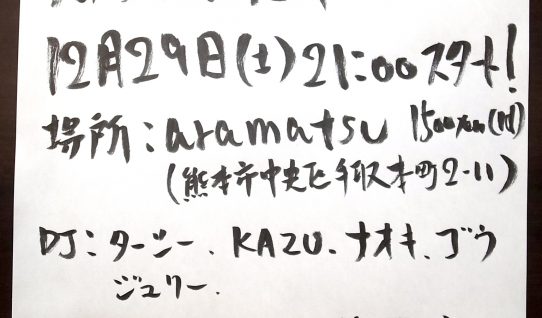 12月29日(土)21:00スタート!
場所:aramatsu 1500yen(1d)
(熊本市中央区手取本町2-11)
DJ:ターシー、KAZU、ナオキ、ゴウ
ジュリー、